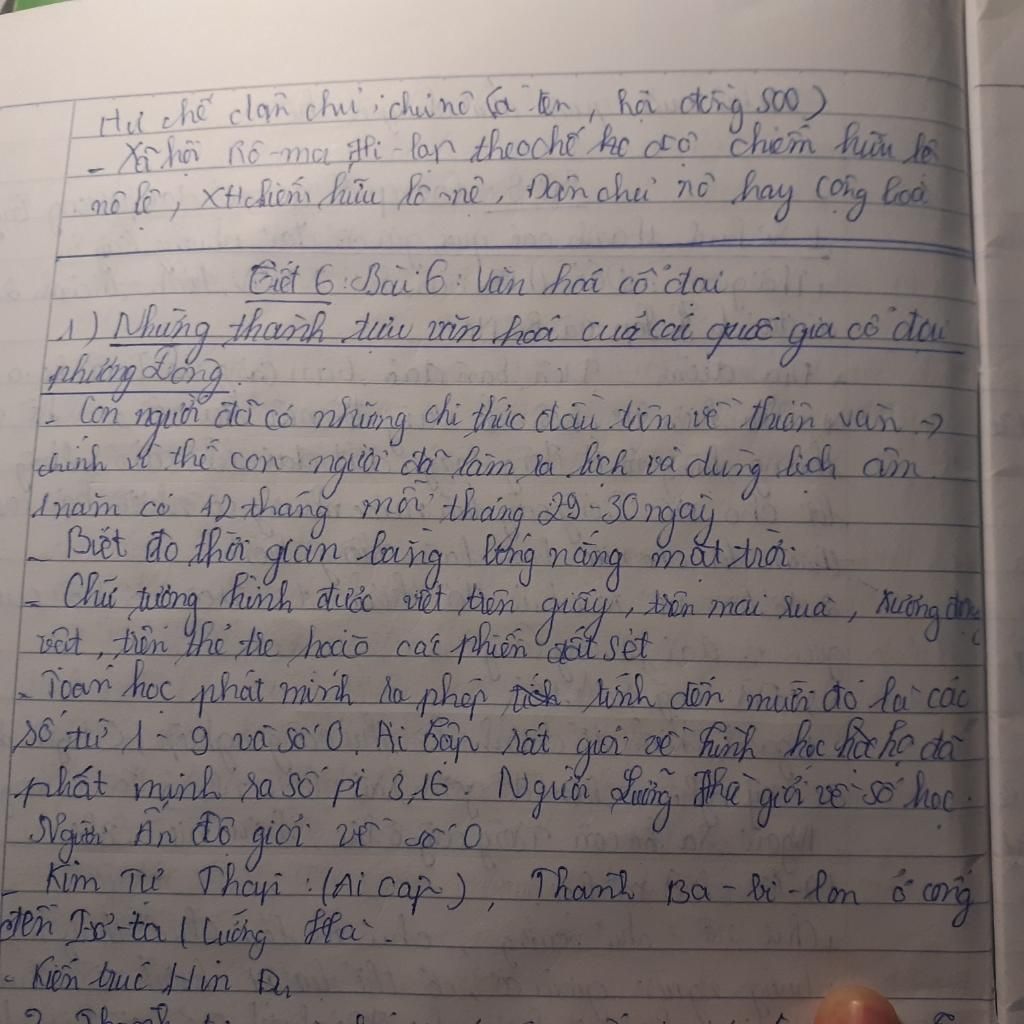 Hư chế dân chủ: chủ nô (a ten, hội đồng 500)
- Xã hội Rô-ma Hi-lạp theo chế độ chiếm hữu lô
nô lê, XH chiếm hữu lô nê, Dân chủ nô hay cộng hoà
Tiết 6: Bài 6: Văn hoá cổ đại
1) Những thành tựu văn hoá của các quốc gia cổ đại
phương Đông.
- Con người đã có những chi thức đầu tiên về thiên văn ->
chính vì thế con người đã làm ra lịch và dùng lịch âm
1 năm có 12 tháng mỗi tháng 29-30 ngày
- Biết đo thời gian bằng bóng nắng mặt trời.
- Chữ tượng hình được viết trên giấy, trên mai rùa, xương động
vật, trên thẻ tre hoặc các phiến đất sét
- Toán học phát minh ra phép tính đến mười đó là các
số từ 1-9 và số 0. Ai Cập rất giỏi về hình học họ đã
phát minh ra số pi 3,16. Người Lưỡng Hà giỏi về số học.
Người Ấn độ giỏi về số 0
- Kim Tự Tháp: (Ai cập), Thành Ba-bi-lon ở cổng
đền I-sơ-ta (Lưỡng Hà.
- Kiến trúc Hin Đu